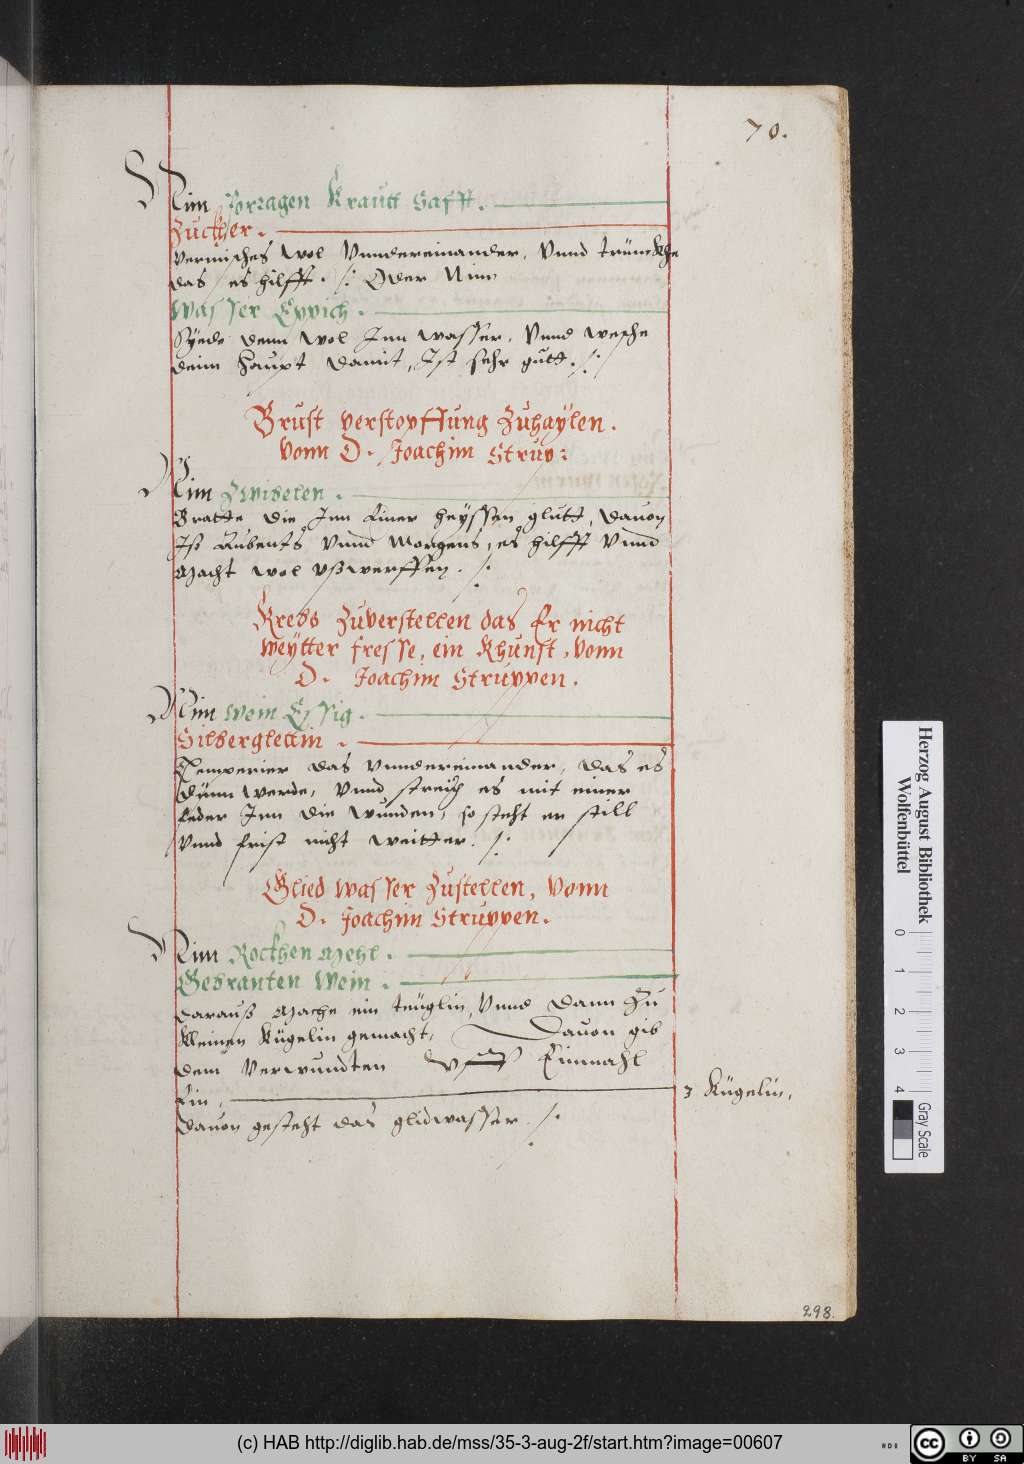 70.
Nim Porragen Krautt Safft.
Zuckher.
vermisches wol Vnndereinander, Vnnd trünckhe
das, es hilfft. Oder Nim
Wasser Eppich.
Syede denn wol Jnn wasser, Vnnd wesche
deim Haupt damit, Jst sehr gutt.
Brust verstopffung Zuhaÿlen.
Vonn D. Joachim Strup:
Nim Zwibelen.
Bratte die Jnn Einer heÿssen glutt, dauon
Jß Aubents Vnnd Morgens, es hilfft Vnnd
Macht wol vßwerffen.
Krebs Zuverstellen das Er nicht
weÿtter fresse, ein Khunst, Vonn
D. Joachim Struppen.
Nim Wein Essig.
Silberglettin.
Temperier das Vnndereinander, das es
dünn werde, Vnnd streich es mit einer
feder Jnn die wunden, so steht er still
Vnnd frist nicht weitter.
Glied wasser Zustellen, Vonn
D. Joachim Struppen.
Nim Rockhen Mehl.
Gebranten Wein.
darauß Mache ein teüglin, Vnnd dann Zu
Kleinen Kügelin gemacht, Dauon gib
dem Verwundten Vff Einmahl
Ein.
3 Kügelin,
dauon gesteht das glidwasser.
298.
Herzog August Bibliothek
Wolfenbüttel
0 1 2 3 4
Gray Scale
(c) HAB http://diglib.hab.de/mss/35-3-aug-2f/start.htm?image=00607
cc BY SA